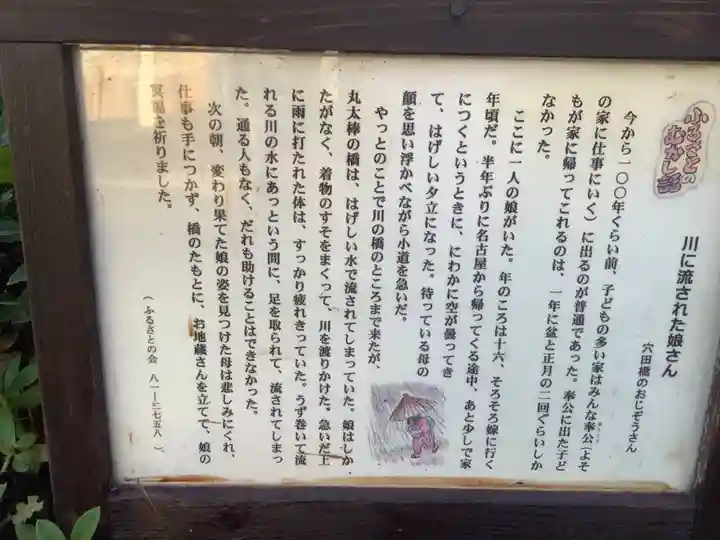 ふるさとのむかし話
川に流された娘さん
穴田橋のおじぞうさん
今から一〇〇年くらい前、子どもの多い家はみんな奉公(よそ
の家に仕事にいく)に出るのが普通であった。奉公に出た子ど
もが家に帰ってこれるのは、一年に盆と正月の二回ぐらいしか
なかった。
ここに一人の娘がいた。年のころは十六、そろそろ嫁に行く
年頃だ。半年ぶりに名古屋から帰ってくる途中、あと少しで家
につくというときに、にわかに空が曇ってき
て、はげしい夕立になった。待っている母の
顔を思い浮かべながら小道を急いだ。
やっとのことで川の橋のところまで来たが、
丸太棒の橋は、はげしい水で流されてしまっていた。娘はしか
たがなく、着物のすそをまくって、川を渡りかけた。急いだ上
に雨に打たれた体は、すっかり疲れきっていた。うず巻いて流
れる川の水にあっという間に、足を取られて、流されてしまっ
た。通る人もなく、だれも助けることはできなかった。
次の朝、変わり果てた娘の姿を見つけた母は悲しみにくれ、
仕事も手につかず、橋のたもとに、お地蔵さんを立てて、娘の
冥福を祈りました。
(ふるさとの会 八一ー二七五八)